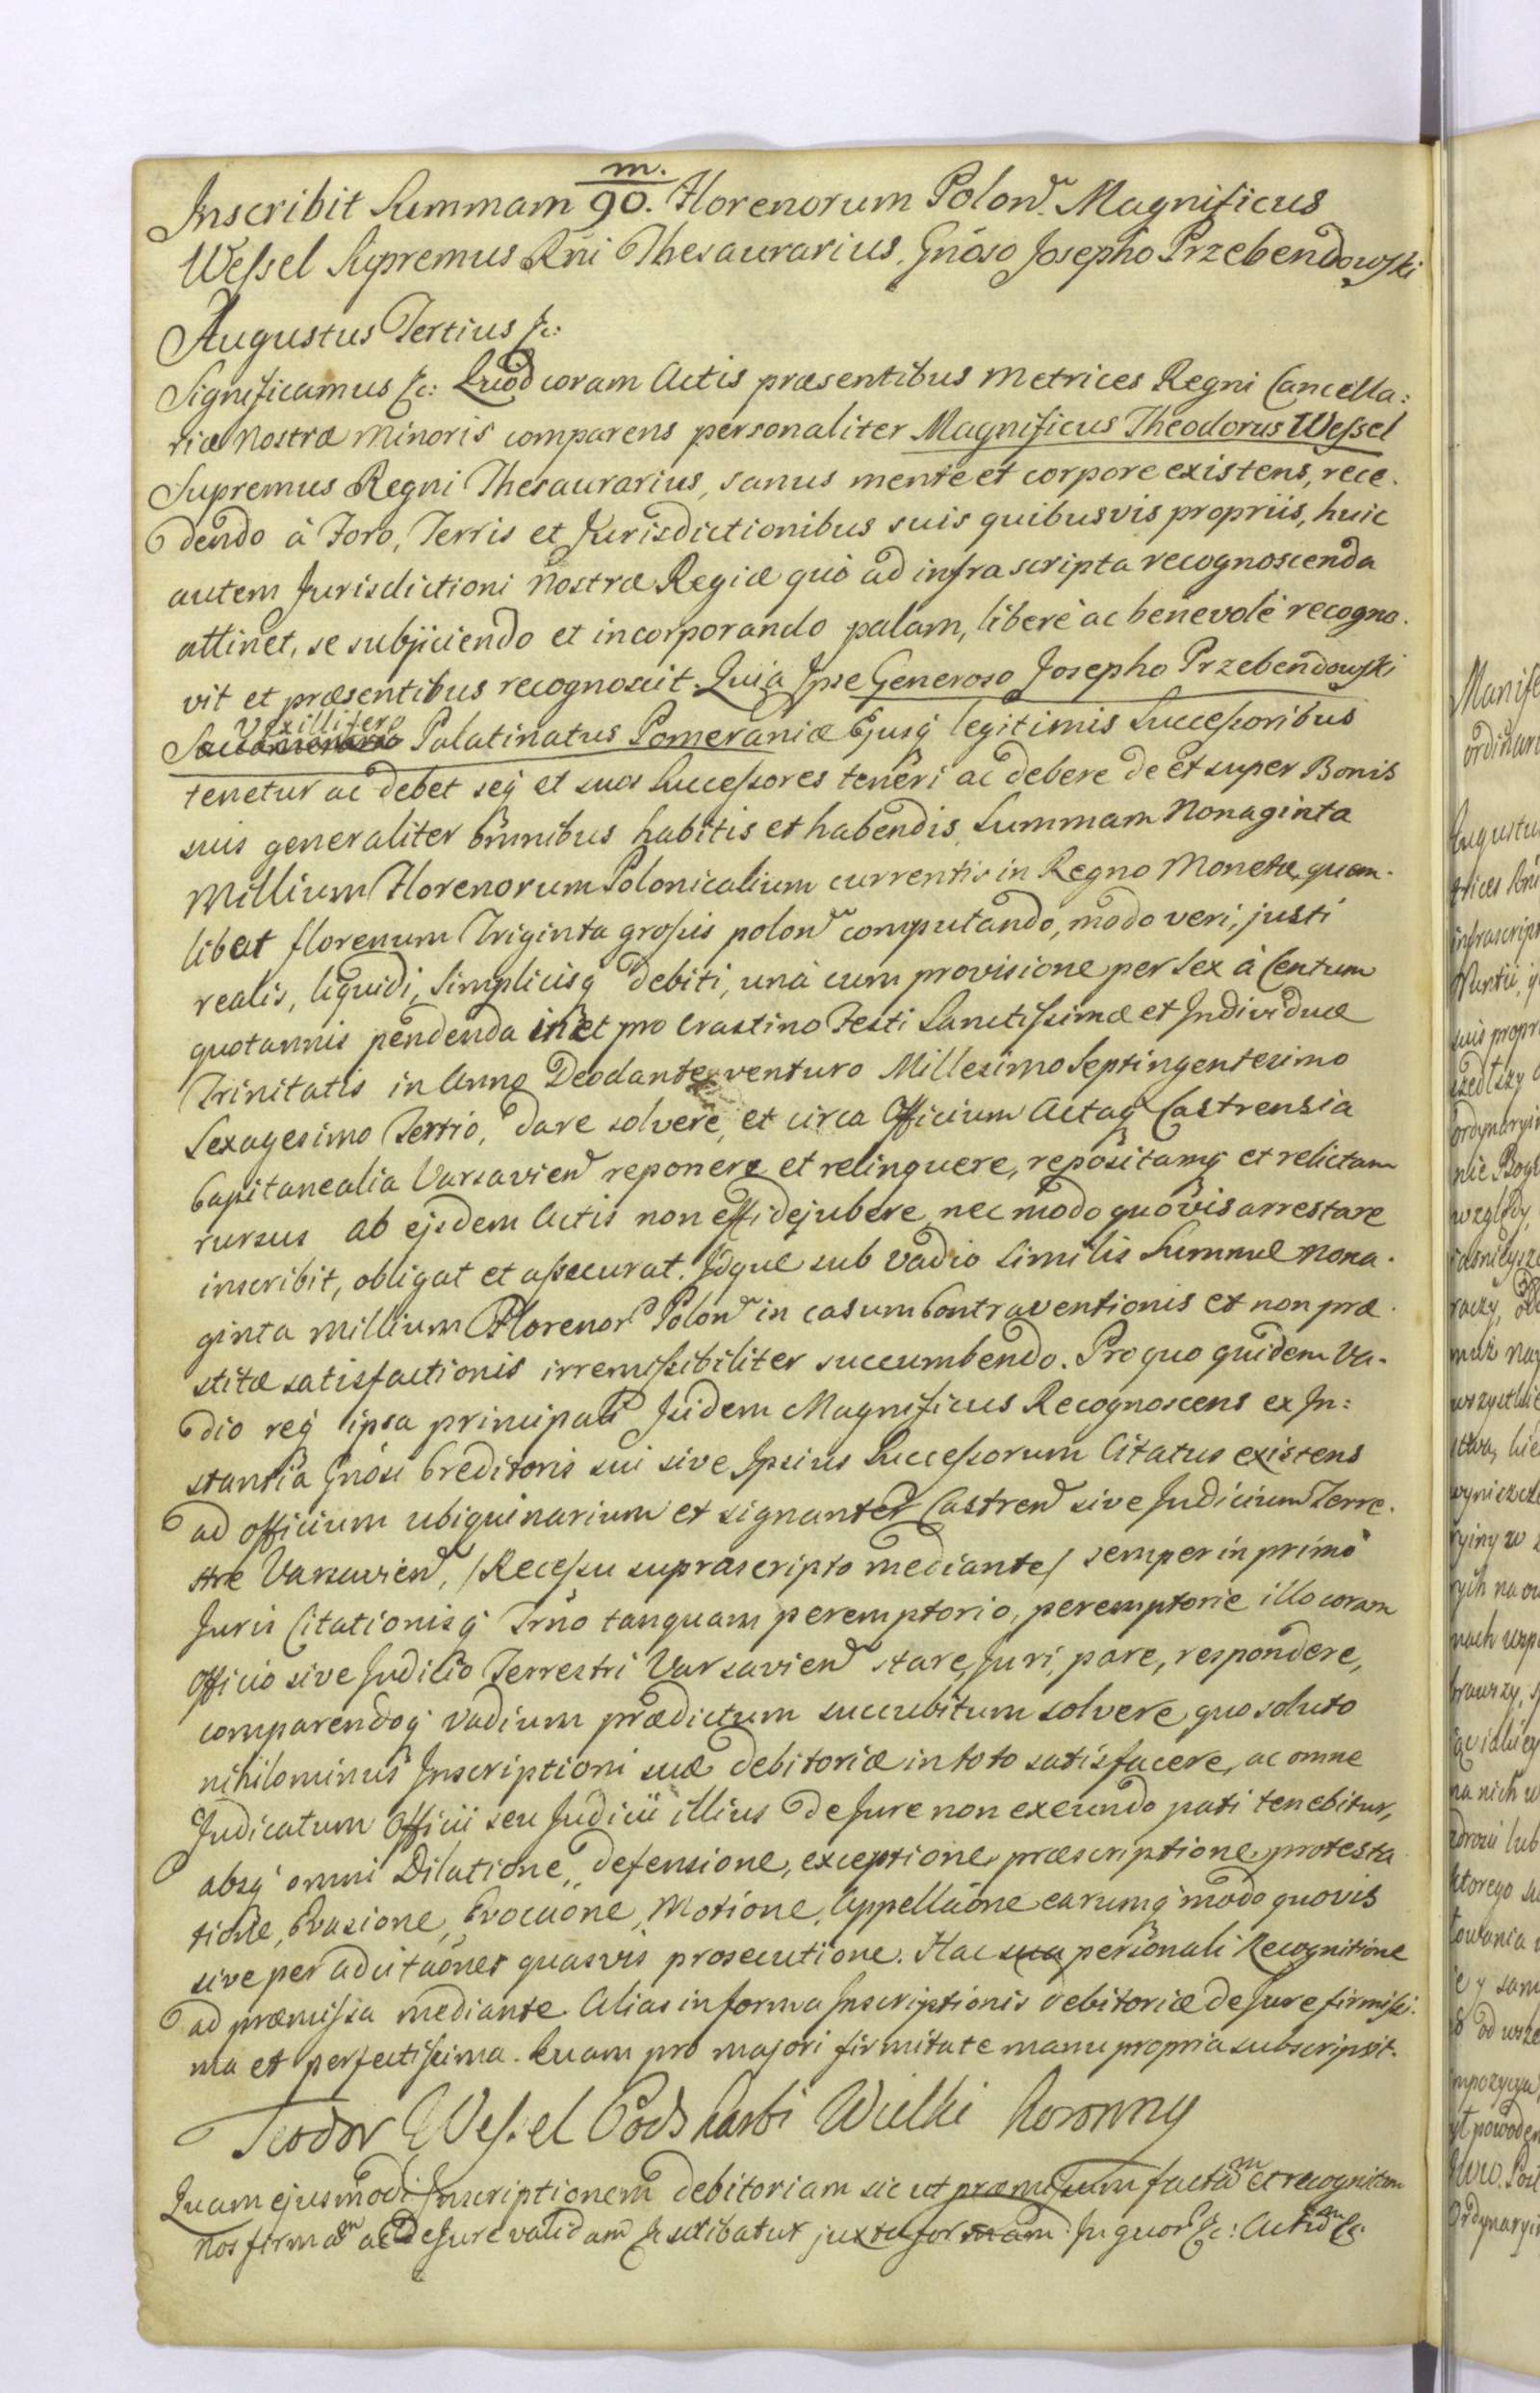 Inscribit Summam m./90. Florenorum Polon. Magnificus
Wessel Supremus Rni Thesaurarius, Gnoso Josepho Przebendowski
Augustus Tertius &c:
Significamus &c: Quod coram Actis præsentibus Metrices Regni Cancella:
riæ Nostræ Minoris comparens personaliter Magnificus Theodorus Wessel
Supremus Regni Thesaurarius, sanus mente et corpore existens, rece.
dendo à Foro, Terris et Jurisdictionibus suis quibusvis propriis, huic
autem Jurisdictioni Nostræ Regiæ quò ad infra scripta recognoscenda
attinet, se subjiciendo et incorporando palam, liberè ac benevolè recogno.
vit et præsentibus recognoscit. Quia Ipse Generoso Josepho Przebendowski
Vexillifero
Palatinatus Pomeraniæ Ejusq legitimis Successoribus
tenetur ac debet seq et suos Successores teneri ac debere de et super Bonis
suis generaliter omnibus habitis et habendis, Summam Nonaginta
Millium Florenorum Polonicalium currentis in Regno Monetæ, quem.
libet florenum Triginta grossis polon computando, modo veri, justi
realis, liquidi, Simplicisq debiti, unà cum provisione per Sex à Centum
quotannis pendenda in et pro Crastino Festi Sanctissimæ et Individuæ
Trinitatis in Anno Deodante venturo Millesimo Septingentesimo
Sexagesimo Tertio, dare solvere, et circa Officium Actaq Castrensia
Capitanealia Varsavien reponere et relinquere, repositamq et relictam
rursus ab ejsdem Actis non effidejubere, nec modo quovis arrestare
inscribit, obligat et assecurat. Idque sub vadio similis Summæ Nona.
ginta Millium Florenor Polon in casum Contraventionis et non præ.
stitæ satisfactionis irremissibiliter succumbendo. Pro quo quidem Va.
dio req ipsa principali Iidem Magnificus Recognoscens ex In:
stantia Gnosi Creditoris sui sive Ipsius Successorum Citatus existens
ad officium ubiquinarium et signanter Castren sive Judicium Terre.
stre Varsavien, /Recessu suprascripto mediante/ semper in primo
Juris Citationisq Trno tanquam peremptorio, peremptorie illo coram
Officio sive Judicio Terrestri Varsavien stare, Juri, pare, respondere,
comparendoq vadium prædictum succubitum solvere, quo soluto
nihilominus Inscriptioni suæ debitoriæ in toto satisfacere, ac omne
Judicatum Officii seu Judicii illius de Jure non exeundo pati tenebitur,
absq omni Dilatione, defensione, exceptione, præscriptione, protesta
tione, Evasione, Evocaone, Motione, Appellaone earumq modo quovis
sive per adcitaones quasvis prosecutione. Hac sua personali Recognitione
ad præmissa mediante. Alias in forma Inscriptionis debitoriæ de Jure firmissi.
ma et perfectissima. Quam pro majori firmitate manu propria subscripsit.
Teodor Wessel Podskarbi Wielki Koronny
Quam ejusmodi Inscriptionem debitoriam sic ut præmissum factam et recognitam
Nos firmam ac de Jure validam &c scribatur juxta formam. In quor &c: Actum &c: